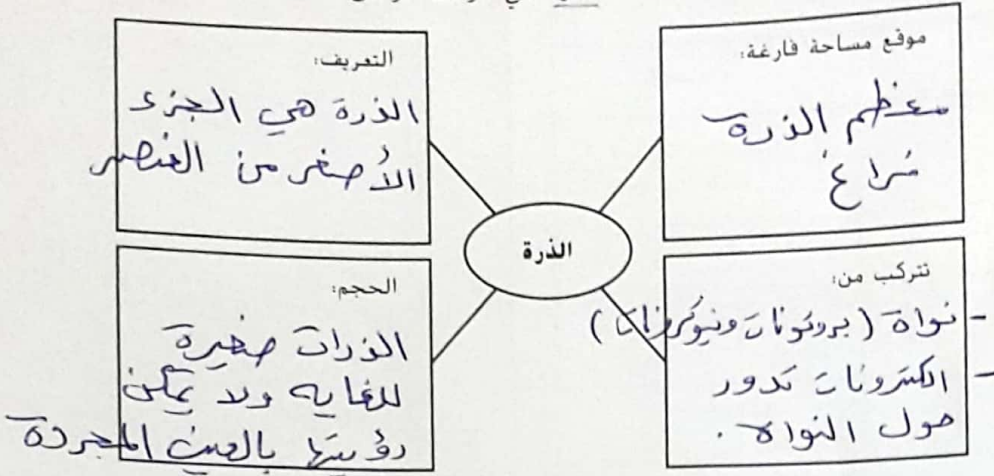 موقع مساحة فارغة:
معظم الذرة
فراغ
التعريف:
الذرة هي الجزء
الأصغر من العنصر
الذرة
تتركب من:
- نواة (بروتونات ونيوترونات)
- الكترونات تدور
حول النواة.
الحجم:
الذرات صغيرة
للغاية ولا يمكن
رؤيتها بالعين المجردة